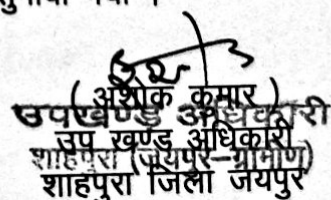 ( अशोक कुमार )
उपखण्ड अधिकारी
उप खण्ड अधिकारी
शाहपुरा (जयपुर-ग्रामीण)
शाहपुरा जिला जयपुर